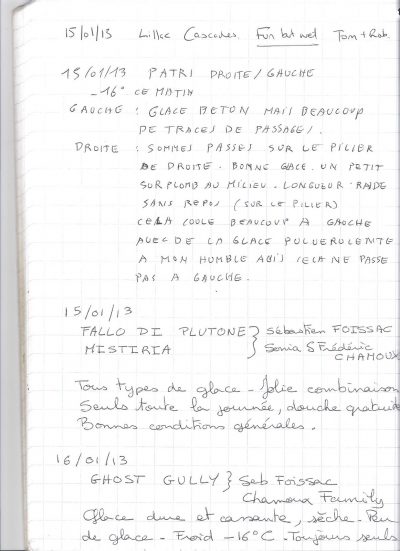 15/01/13 Lillaz Cascades. Fun but wet Tom + Rob.
15/01/13 PATRI DROITE / GAUCHE
-16° CE MATIN
GAUCHE : GLACE BETON MAIS BEAUCOUP
DE TRACES DE PASSAGES.
DROITE : SOMMES PASSES SUR LE PILIER
DE DROITE. BONNE GLACE. UN PETIT
SURPLOMB AU MILIEU. LONGUEUR RAIDE
SANS REPOS (SUR LE PILIER)
CELA COULE BEAUCOUP A GAUCHE
AVEC DE LA GLACE PULVERULENTE
A MON HUMBLE AVIS CELA NE PASSE
PAS A GAUCHE.
15/01/13
FALLO DI PLUTONE } Sébastien FOISSAC
MISTIRIA } Sonia & Frédéric
CHAMOUX
Tous types de glace - Jolie combinaison
Seuls toute la journée, douche gratuite
Bonnes conditions générales.
16/01/13
GHOST GULLY } Seb Foissac
Chamoux Family
Glace dure et cassante, sèche. Peu
de glace - Froid -16°C - Toujours seuls